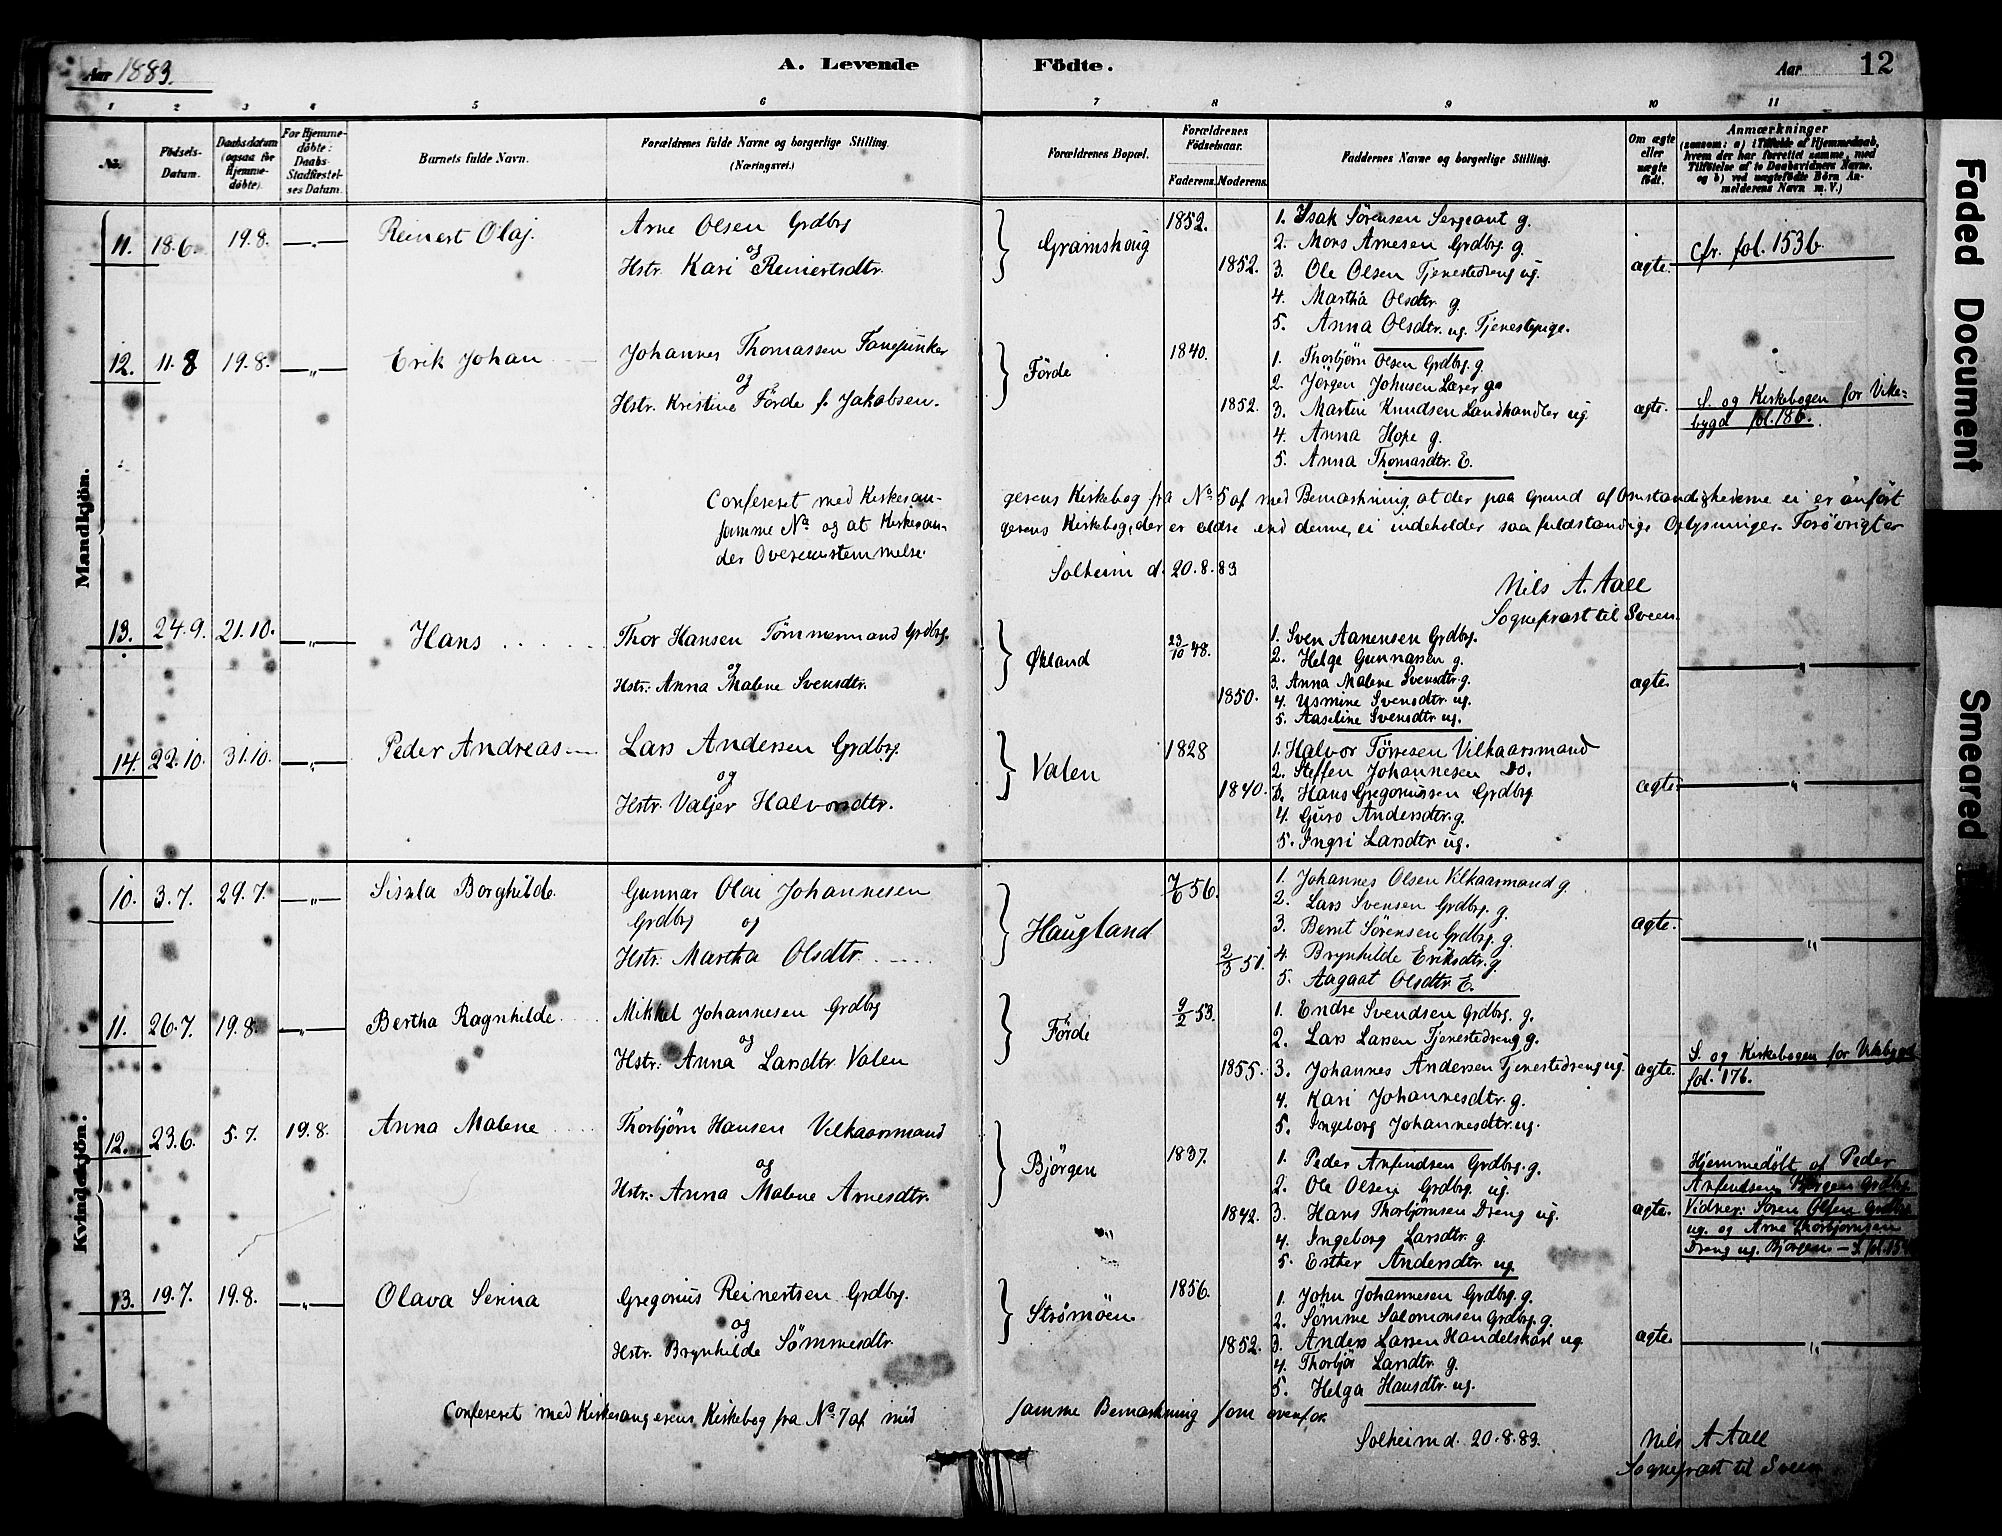 Aar 1883.
A. Levende Födte.
Aar
12
1 2 3 4 5 6 7 8 9 10 11
No.
Födsels-Datum.
Daabsdatum (ogsaa for Hjemmedøbte).
For Hjemmedöbte: Daabs-Stadfæstelses Datum.
Barnets fulde Navn.
Forældrenes fulde Navne og borgerlige Stilling.
(Næringsvei.)
Forældrenes Bopæl.
Forældrenes Födselsaar.
Faderens. Moderens.
Faddernes Navne og borgerlige Stilling.
Om ægte eller uægte födt.
Anmærkninger
(saasom: a) i Tilfælde af Hjemmedaab, hvem der har forrettet samme, med Tilföielse af to Daabsvidners Navne, og b) ved uægtefødte Børn Anmelderens Navn m. V.)
Mandkjön.
11. 18.6. 19.8. —"— Reinert Olaj. Arne Olsen Grdbrg
og
Hstr. Kari Reinertsdtr.
Gramshoug
1852.
1852.
1. Isak Sørensen Sergeant g.
2. Mons Arnesen Grdbrg. g.
3. Ole Olsen Tjenestedreng ug.
4. Martha Olsdtr. g.
5. Anna Olsdtr. ug. Tjenestepige.
ægte.
cfr. fol. 153b
12. 11.8 19.8. —"— Erik Johan Johannes Thomassen Fanejunker
og
Hstr. Kristine Förde f. Jakobsen.
Förde
1840.
1852.
1. Thorbjørn Olsen Grdbrg. g
2. Jörgen Johnsen Lærer g.
3. Martin Knudsen Landhandler ug.
4. Anna Hope g.
5. Anna Thomasdtr. E.
ægte.
S. og Kirkebogen for Vike-
bygd fol. 186.
Confereret med Kirkesangerens Kirkebog fra No. 5 af med Bemærkning, at der paa Grund af Omstændighederne ei er anført
samme No. og at Kirkesangerens Kirkebog, der er ældre end denne, ei indeholder saa fuldstændige Oplysninger. Forövrigt er
der Overensstemmelse.
Solheim d. 20.8.83
Nils A. Aall
Sognepræst til Sveen.
13. 24.9. 21.10. —"— Hans Thor Hansen Tømmermand Grdbrg.
og
Hstr. Anna Malene Svensdtr.
Økland
23/10 48.
1850.
1. Sven Aanensen Grdbrg.
2. Helge Gunnarsen g.
3. Anna Malene Svensdtr. g.
4. Usmine Svensdtr. ug.
5. Aaseline Svensdtr ug.
ægte.
—"—
14. 22.10. 31.10. —"— Peder Andreas Lars Andersen Grdbrg.
og
Hstr. Valjer Halvorsdtr.
Valen
1828
1840.
1. Halvor Tørresen Vilkaarsmand
2. Steffen Johannesen Do.
3. Hans Gregoriussen Grdbrg
4. Guro Andersdtr. g.
5. Ingri Larsdtr. ug.
ægte.
—"—
Kvindekjön.
10. 3.7. 29.7. —"— Sissla Borghilde Gunnar Olai Johannesen
Grdbrg og
Hstr. Martha Olsdtr.
Haugland
7/6 56.
2/3 51.
1. Johannes Olsen Vilkaarsmand g.
2. Lars Svensen Grdbrg. g.
3. Bernt Sörensen Grdbrg. g.
4. Brynhilde Eriksdtr. g.
5. Aagaat Olsdtr. E.
ægte.
—"—
11. 26.7. 19.8. —"— Bertha Ragnhilde Mikkel Johannesen Grdbrg
og
Hstr. Anna Larsdtr. Valen
Förde
9/2 53.
1855.
1. Endre Svendsen Grdbrg. g.
2. Lars Larsen Tjenestedreng g.
3. Johannes Andersen Tjenestedreng ug.
4. Kari Johannesdtr. g.
5. Ingeborg Johannesdtr. ug.
ægte.
S. og Kirkebogen for Vikebygd
fol. 176.
12. 23.6. 5.7. 19.8. Anna Malene Thorbjørn Hansen Vilkaarsmand
og
Hstr. Anna Malene Arnesdtr.
Björgen
1837.
1842.
1. Peder Anfindsen Grdbrg. g.
2. Ole Olsen Grdbrg. ug.
3. Hans Thorbjørnsen Dreng ug.
4. Ingeborg Larsdtr. g.
5. Esther Andersdtr. ug.
ægte.
Hjemmedøbt af Peder
Anfindsen Björgen Grdbrg.
Vidner: Soren Olsen Grdbrg
ug. og Arne Thorbjørnsen
Dreng ug. Bjørgen
13. 19.7. 19.8. —"— Olava Serina Gregorius Reinertsen Grdbrg.
og
Hstr. Brynhilde Sömmesdtr.
Strömöen
1856.
1852.
1. John Johannesen Grdbrg. g.
2. Sömme Salomonsen Grdbrg. g.
3. Anders Larsen Handelskarl ug
4. Thorbjør Larsdtr. g.
5. Helga Hansdtr. ug.
ægte.
—"—
Confereret med Kirkesangerens Kirkebog fra No. 7 af med samme Bemærkning som ovenfor.
Solheim d. 20.8.83.
Nils A Aall
Sognepræst til Sveen
Faded Document
Smeared